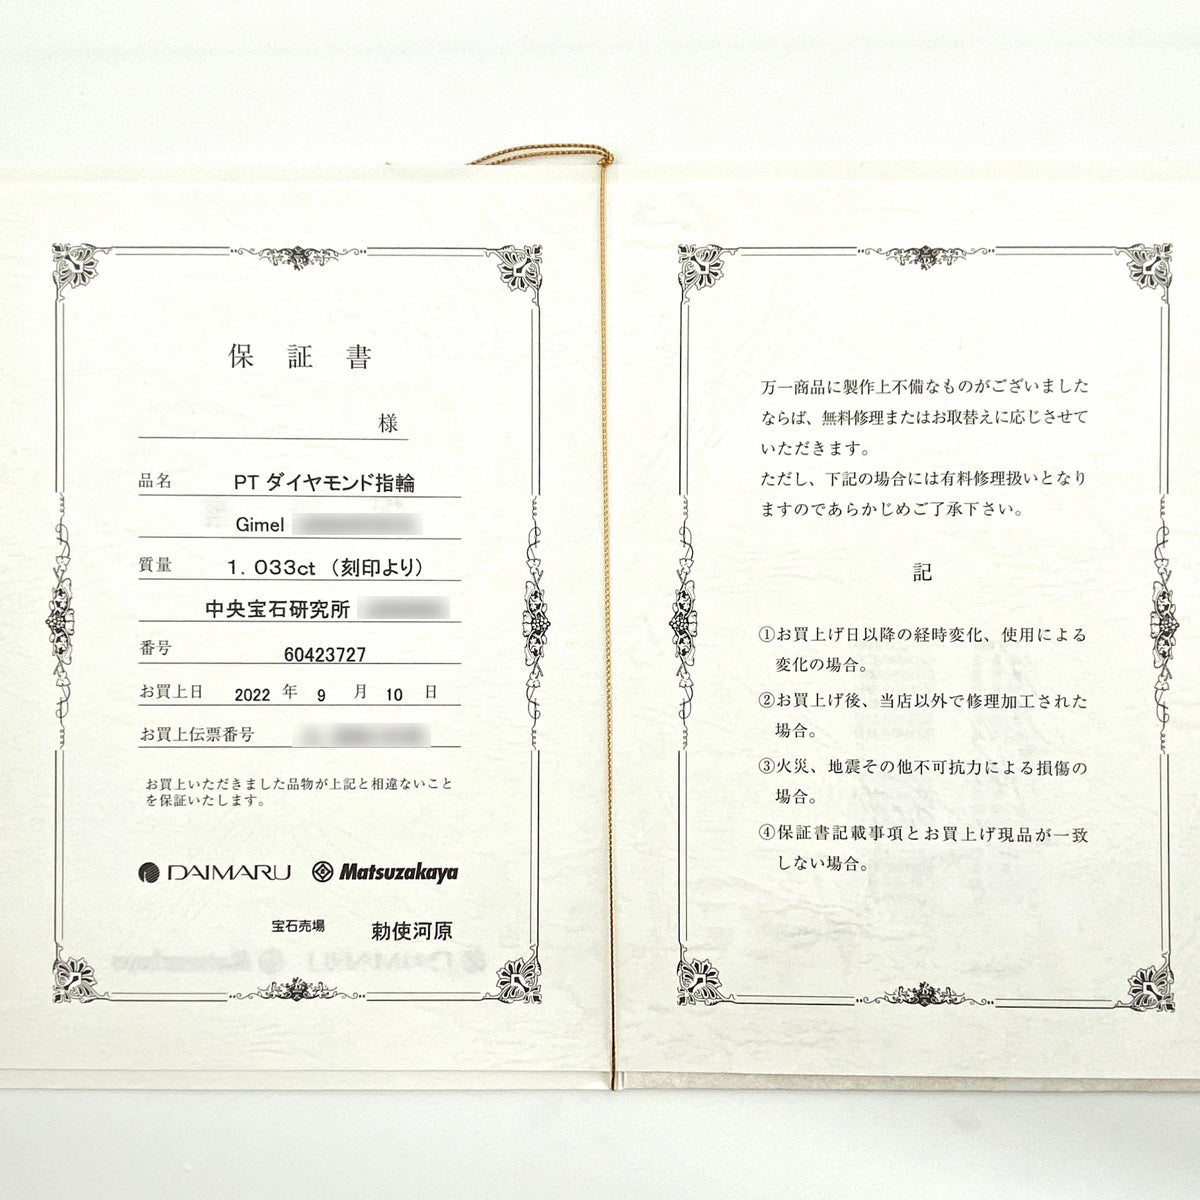 保証書
様
品名 PT ダイヤモンド指輪
Gimel
質量 1.033ct (刻印より)
中央宝石研究所
番号 60423727
お買上日 2022 年 9 月 10 日
お買上伝票番号
お買上いただきました品物が上記と相違ないこと
を保証いたします。
DAIMARU Matsuzakaya
宝石売場 勅使河原
万一商品に製作上不備なものがございました
ならば、無料修理またはお取替えに応じさせて
いただきます。
ただし、下記の場合には有料修理扱いとなり
ますのであらかじめご了承下さい。
記
①お買上げ日以降の経時変化、使用による
変化の場合。
②お買上げ後、当店以外で修理加工された
場合。
③火災、地震その他不可抗力による損傷の
場合。
④保証書記載事項とお買上げ現品が一致
しない場合。